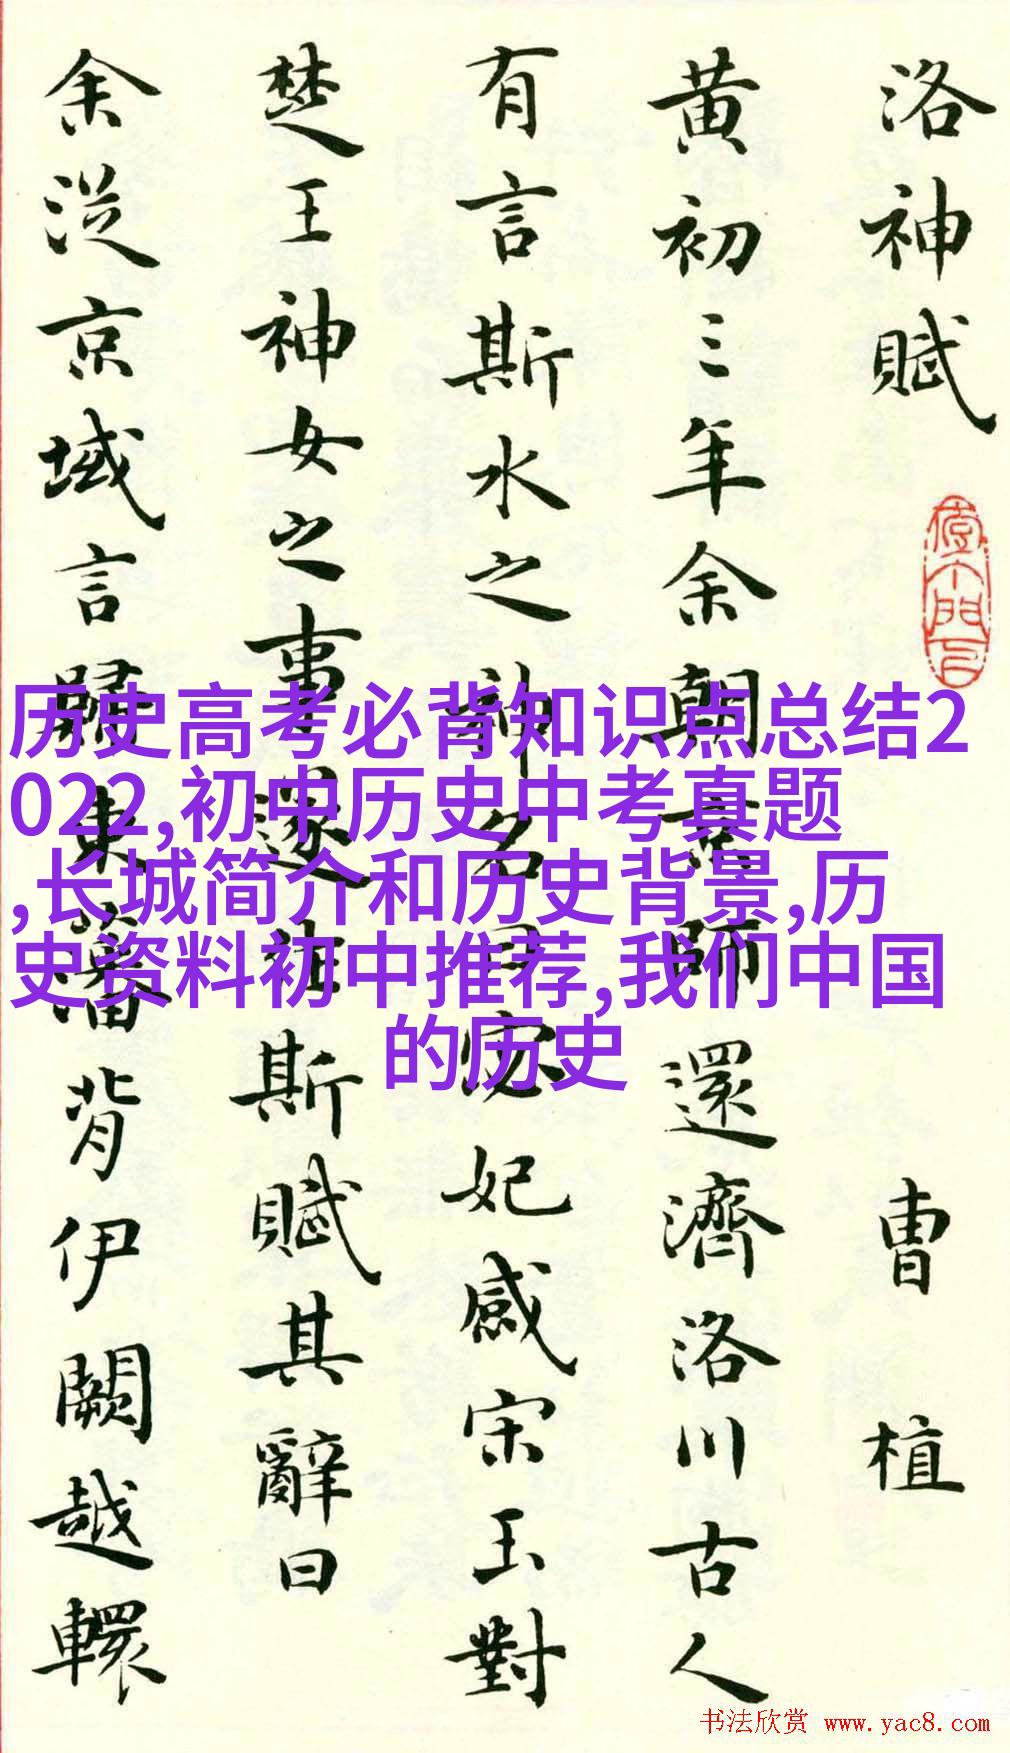 洛神賦
曹植
黄初三年余朝京師還濟洛川古人
有言斯水之神名曰宓妃感宋玉對
楚王神女之事遂作斯賦其辭曰
余從京域言歸東藩背伊闕越轘
历史高考必背知识点总结2
022,初中历史中考真题
,长城简介和历史背景,历
史资料初中推荐,我们中国
的历史
书法欣赏 www.yac8.com